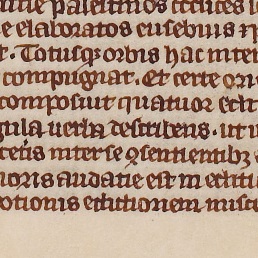 palestinos codices le
e elaboratos eusebius ⁊ p
t. Totusq; orbis hac inter
compugnat. Et certe ori
composuit quatuor edit
gula uerba describens. ut u
ceteris inter se ꝯsentientibꝫ
ioris audatie est in editi
otionis editionem misc